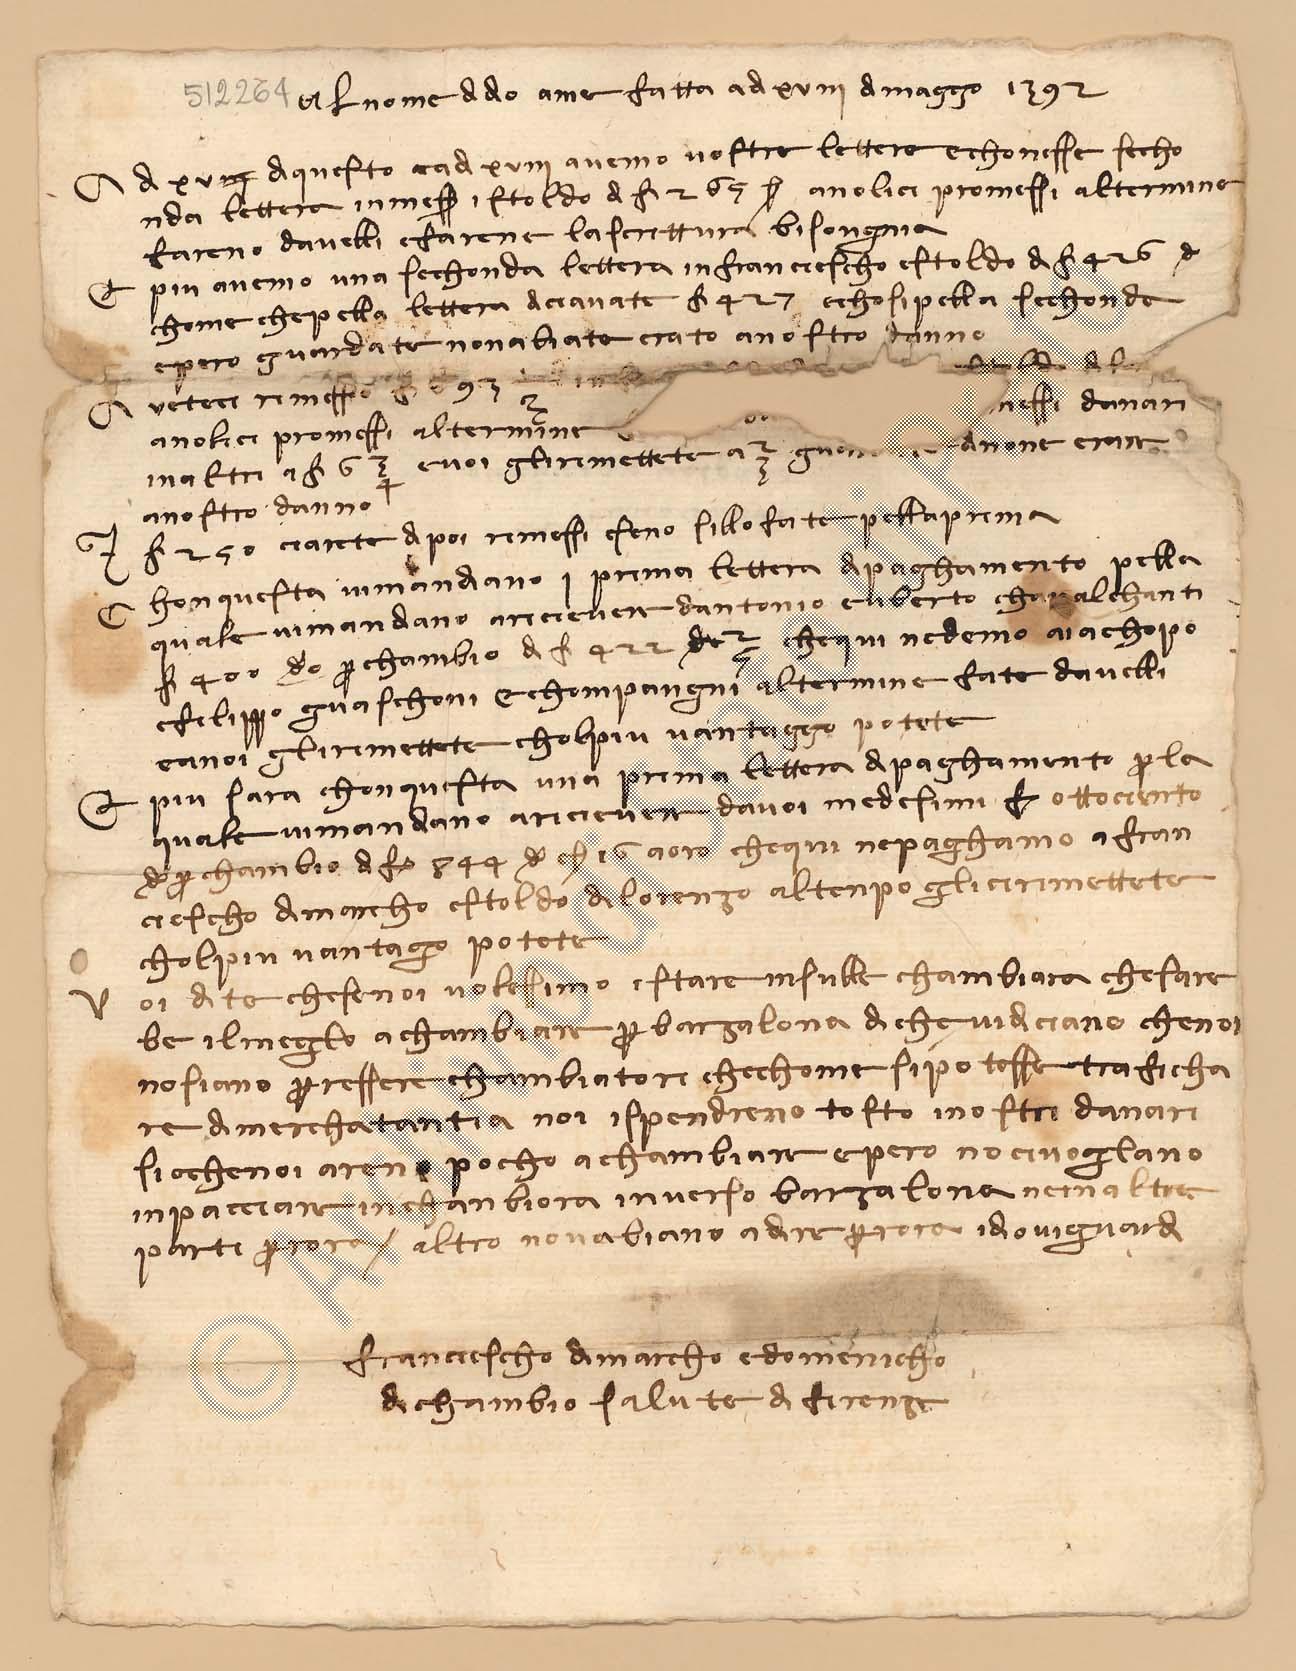 512264 al nome ddo ame fatta ad xviii dmaggo 1392
A d dquesto e ad xviii avemo vostre lettere e chonesse secho
nda lettera in istoldo d f 265 anolici promessi altermine
fareno davelli e farene lascrettura bisongnia
E piu avemo una sechonda lettera in franciescho estoldo d f 426 d
chome chepella lettera dciavate f 427 echosipella sechonda
epero guardate nonabiate erato anostro danno
A veteci rimesso
anolici promessi altermine messi danari
inaltri a f 6 3/4 evoi gliremettete a 2/3 danone erare
anostro danno
I f 250 ciarete dpoi remessi sillofate pellaprima
C honquesta vimandiano i prima lettera dpaghamento pella
quale vimandano aricievere dantonio e uberto chavalchanti
f 400 do p chambio d f 422 chequi nedemo aiachopo
efilippo guaschoni e chompangni altermine fate davelli
eanoi gliremettete cholpiu vantaggo potete
E piu sara chonquesta una prima lettera dpaghamento p la
quale vimandano aricievere davoi medesimi f ottociento
do p chambio d f 844 16 aoro chequi nepaghamo a fran
ciescho dmarcho estoldo dlorenzo altenpo gliciremettete
cholpiu vantago potete
V oi dite chesenoi volesimo istare insulle chambiora chesare
be ilmeglo achambiare p barzalona diche vidiciano chenoi
nosiano p essere chambiatori chechome sipotesse traficha
re dmerchatantia noi ispendreno tosto inostri danari
siochenoi areno pocho achambiare epero nocivoglano
inpacciare inchanbiora inverso barzalona neinaltre
parti p ora / altro novabiano adire p ora idovi guardi
franciescho dmarcho edomenicho
dichambio salute di firenze
© ARCHIVIO